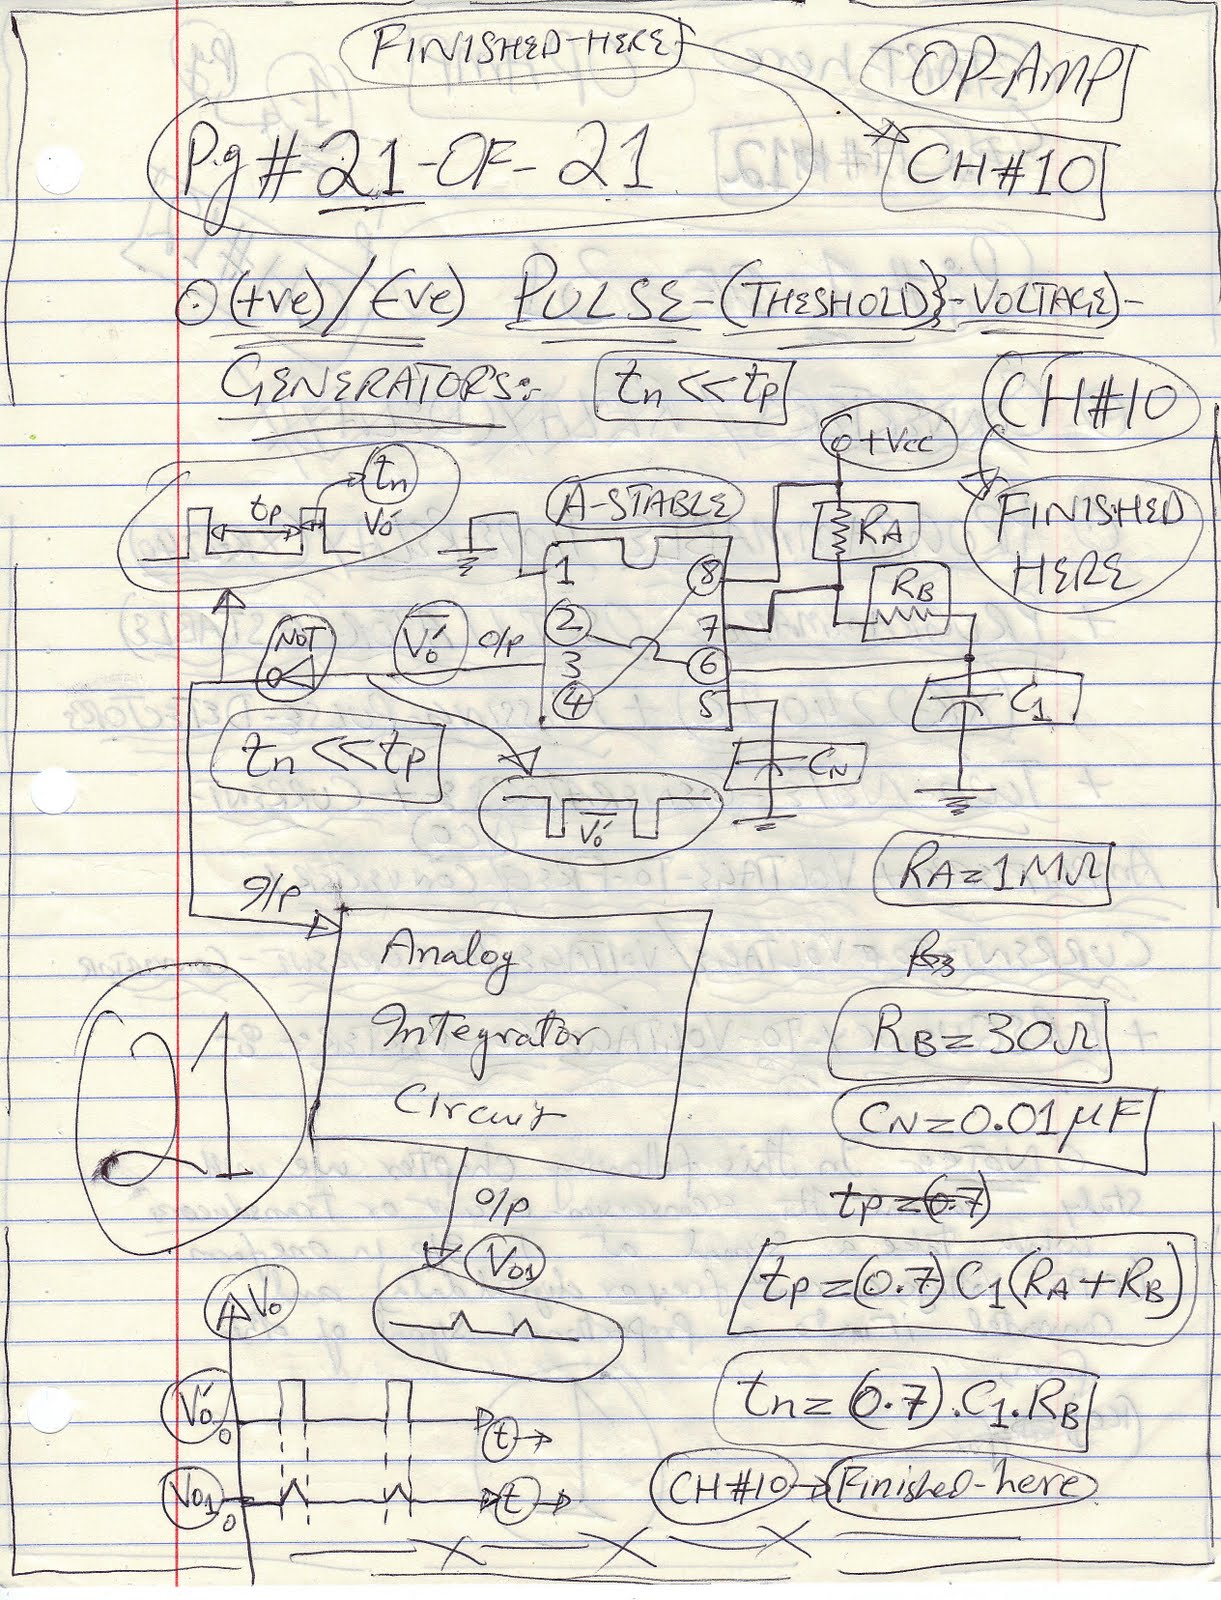 FINISHED-HERE
OP-AMP
Pg# 21-OF-21
CH#10
⊙(+ve)/(-ve) PULSE-(THESHOLD}-VOLTAGE)-
GENERATOR'S:-
tn<<tp
CH#10
FINISHED
HERE
+Vcc
tn
tp
Vo'
A-STABLE
RA
RB
1
8
2
7
3
6
4
5
NOT
Vo'
O/P
C1
CN
tn<<tp
Vo'
RA=1MΩ
I/P
Analog
Integrator
Circuit
RB=30Ω
CN=0.01μF
21
tp=(0.7)
O/P
Vo1
tp=(0.7)C1(RA+RB)
Vo
tn=(0.7).C1.RB
Vo'
0
t
CH#10→Finished-here
Vo1
0
t